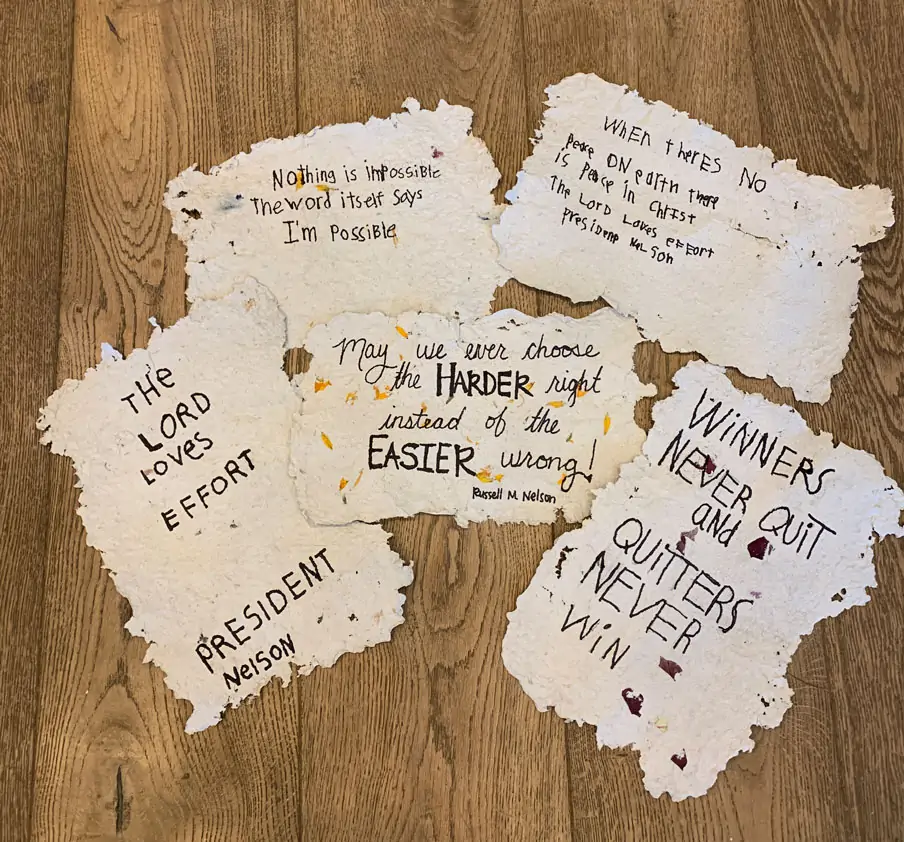 Nothing is impossible
The word itself says
I'm Possible
WhEN thERES NO
peace ON earth there
is Peace in ChRIst
The LORD Loves effort
President NeLSON
THe
LORD
Loves
EFFORT
PRESIDENT
NelSON
May we ever choose
the HARDER right
instead of the
EASIER wrong!
Russell M. Nelson
WiNNERS
NEVER QUiT
aNd
QUITTERS
NEVER
WiN